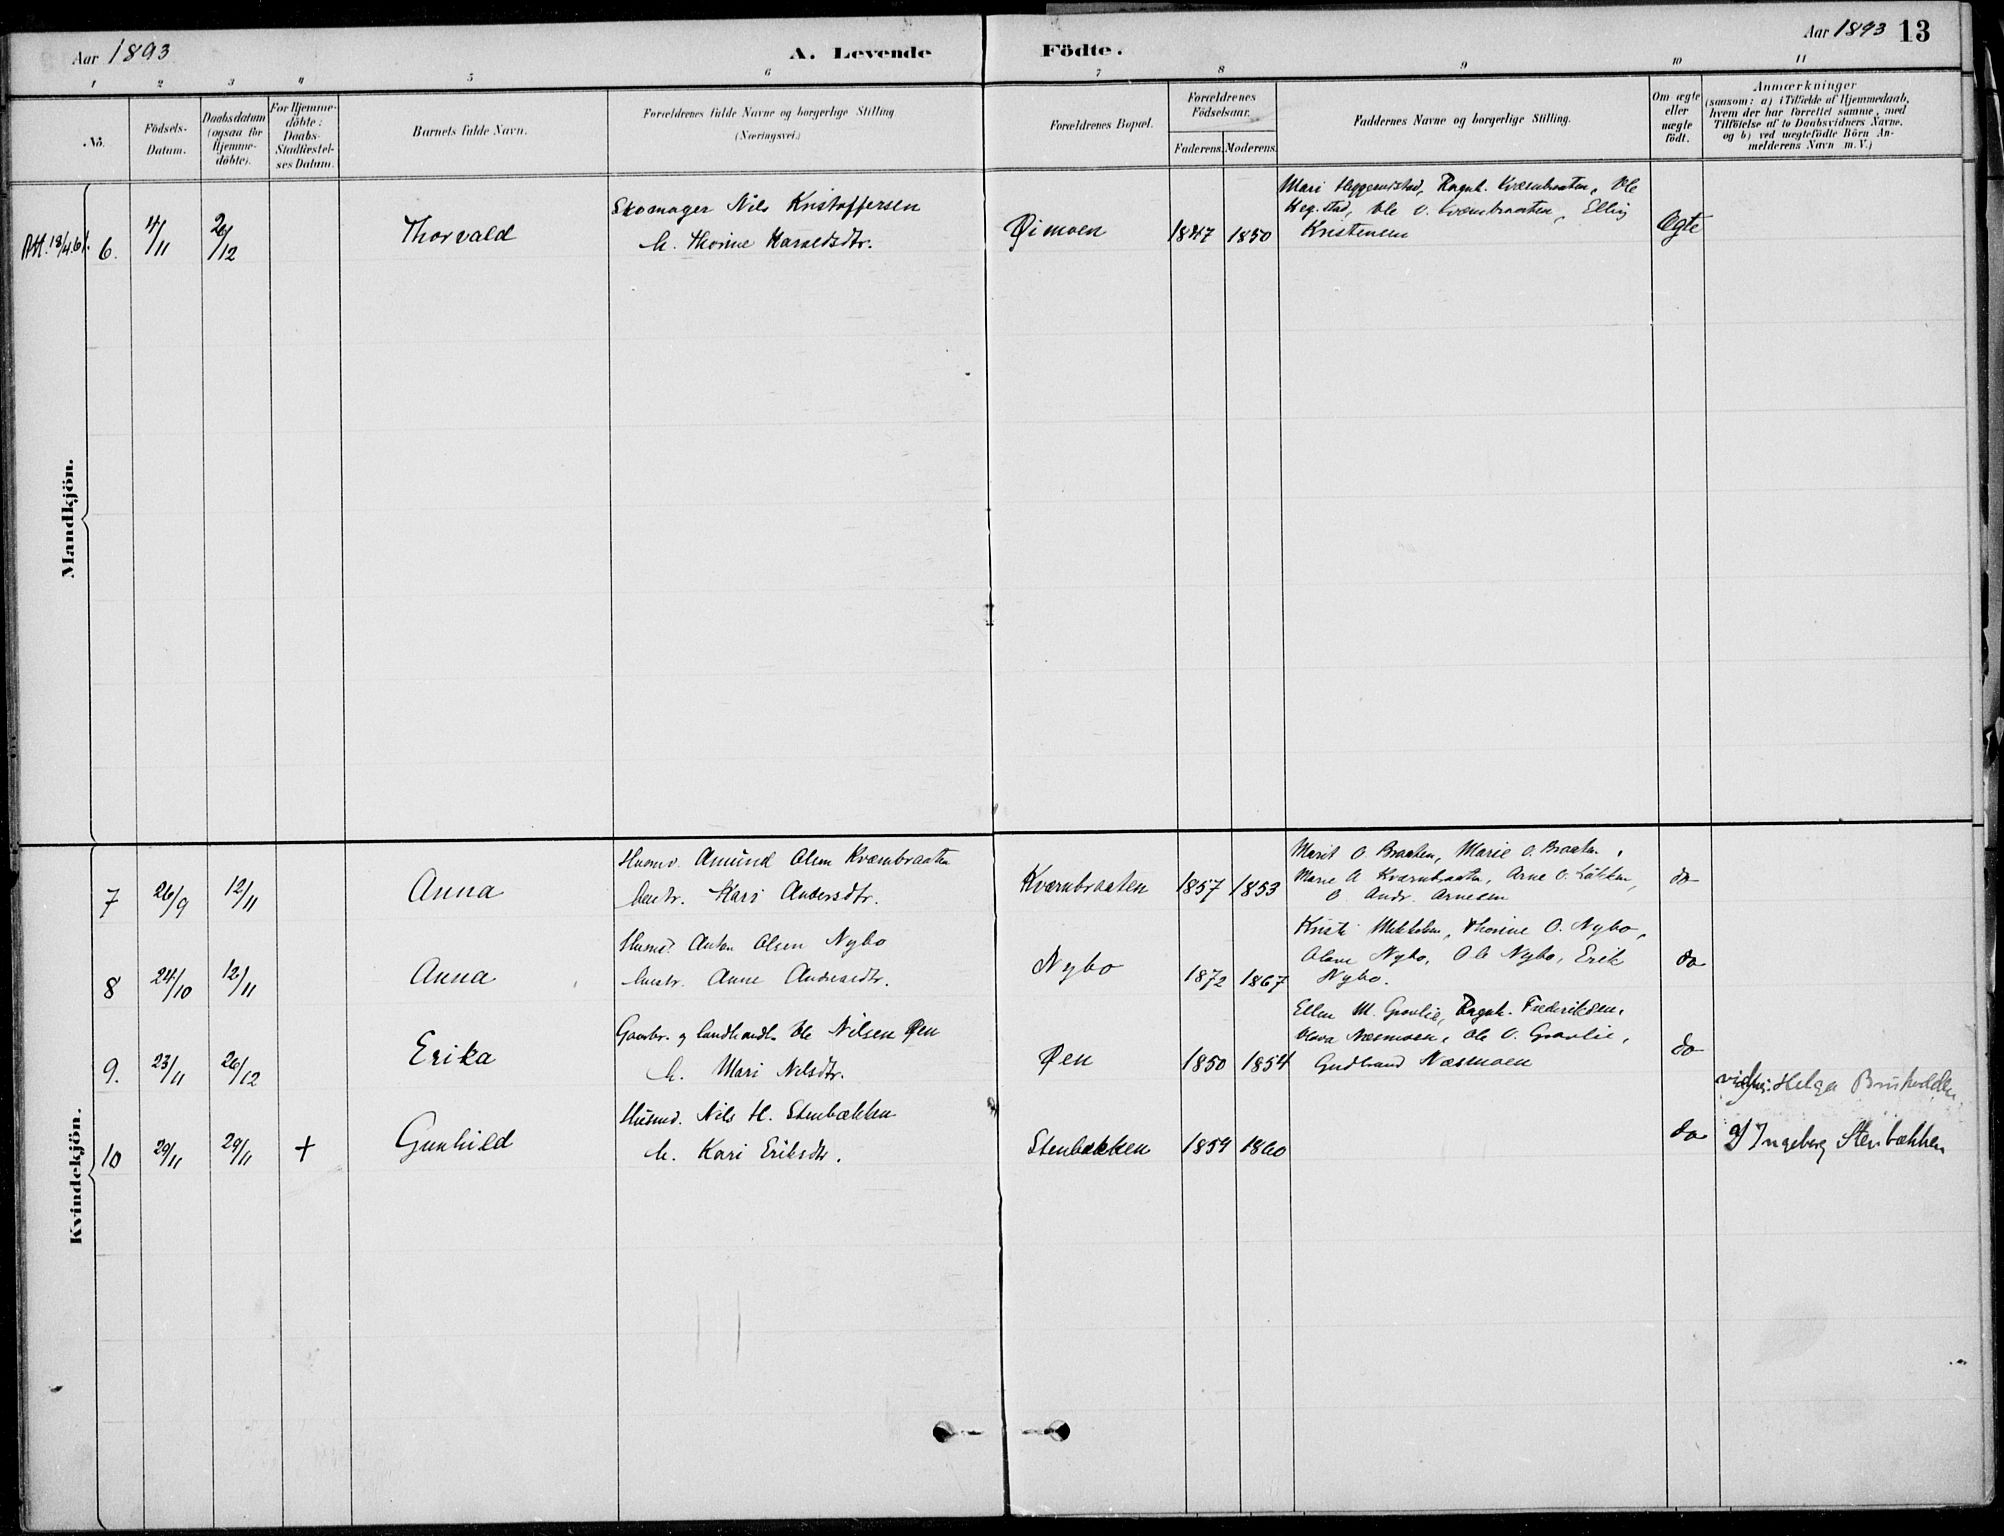 Aar 1893
A. Levende Födte.
Aar 1893 13
1 2 3 4 5 6 7 8 9 10 11
No.
Födsels-Datum.
Daabsdatum (ogsaa for Hjemmedöbte).
For Hjemmedöbte: Daabs-Stadfestelses Datum.
Barnets fulde Navn.
Forældrenes fulde Navne og borgerlige Stilling (Næringsvei.)
Forældrenes Bopæl.
Forældrenes Födselsaar.
Faderens. Moderens.
Faddernes Navne og borgerlige Stilling.
Om ægte eller uægte födt.
Anmærkninger
(saasom: a) i Tilfælde af Hjemmedaab, hvem der har forrettet samme, med Tilföielse af to Daabsvidners Navne. og b) ved uægtefödte Börn Anmelderens Navn m. V.)
Mandkjön.
6. 4/11 26/12 Thorvald
Skomager Nils Kristoffersen
h. Thorine Haraldsdtr.
Øimoen 1847 1850
Mari Heggerustad, Ragnh. Kværnbraaten, Ole
Heg.stad, Ole O. Kværnbraaten, Elling
Kristensen
Ægte
Kvindekjön.
7 26/9 12/11 Anna
Husmd. Amund Olsen Kværnbraaten
hustr. Kari Andersdtr.
Kværnbraaten 1857 1853
Marit O. Braaten, Marie O. Braaten,
Marie A Kværnbraaten, Arne O. Løkken,
O. Andr. Arnesen
do
8 24/10 12/11 Anna
Husmd. Anton Olsen Nybo
hustr. Anne Andreasdtr.
Nybo 1872 1867
Kristi, Thorine O. Nybo,
Olava Nybo, Ole Nybo, Erik
Nybo.
do
9. 23/11 26/12 Erika
Gaardbr. og Landhandl. Ole Nilsen Øen
h. Mari Nilsdtr.
Øen 1850 1854
Ellen M. Gravlie, Ragnh. Frederiksen,
Olava Næsmoen, Ole O. Gravlie,
Gudbrand Næsmoen
do
10 29/11 29/11 + Gunhild
Husmd. Nils H. Stenbækken
h. Kari Eriksdtr.
Stenbækken 1859 1860
do
Helga
og Ingeborg Stenbækken